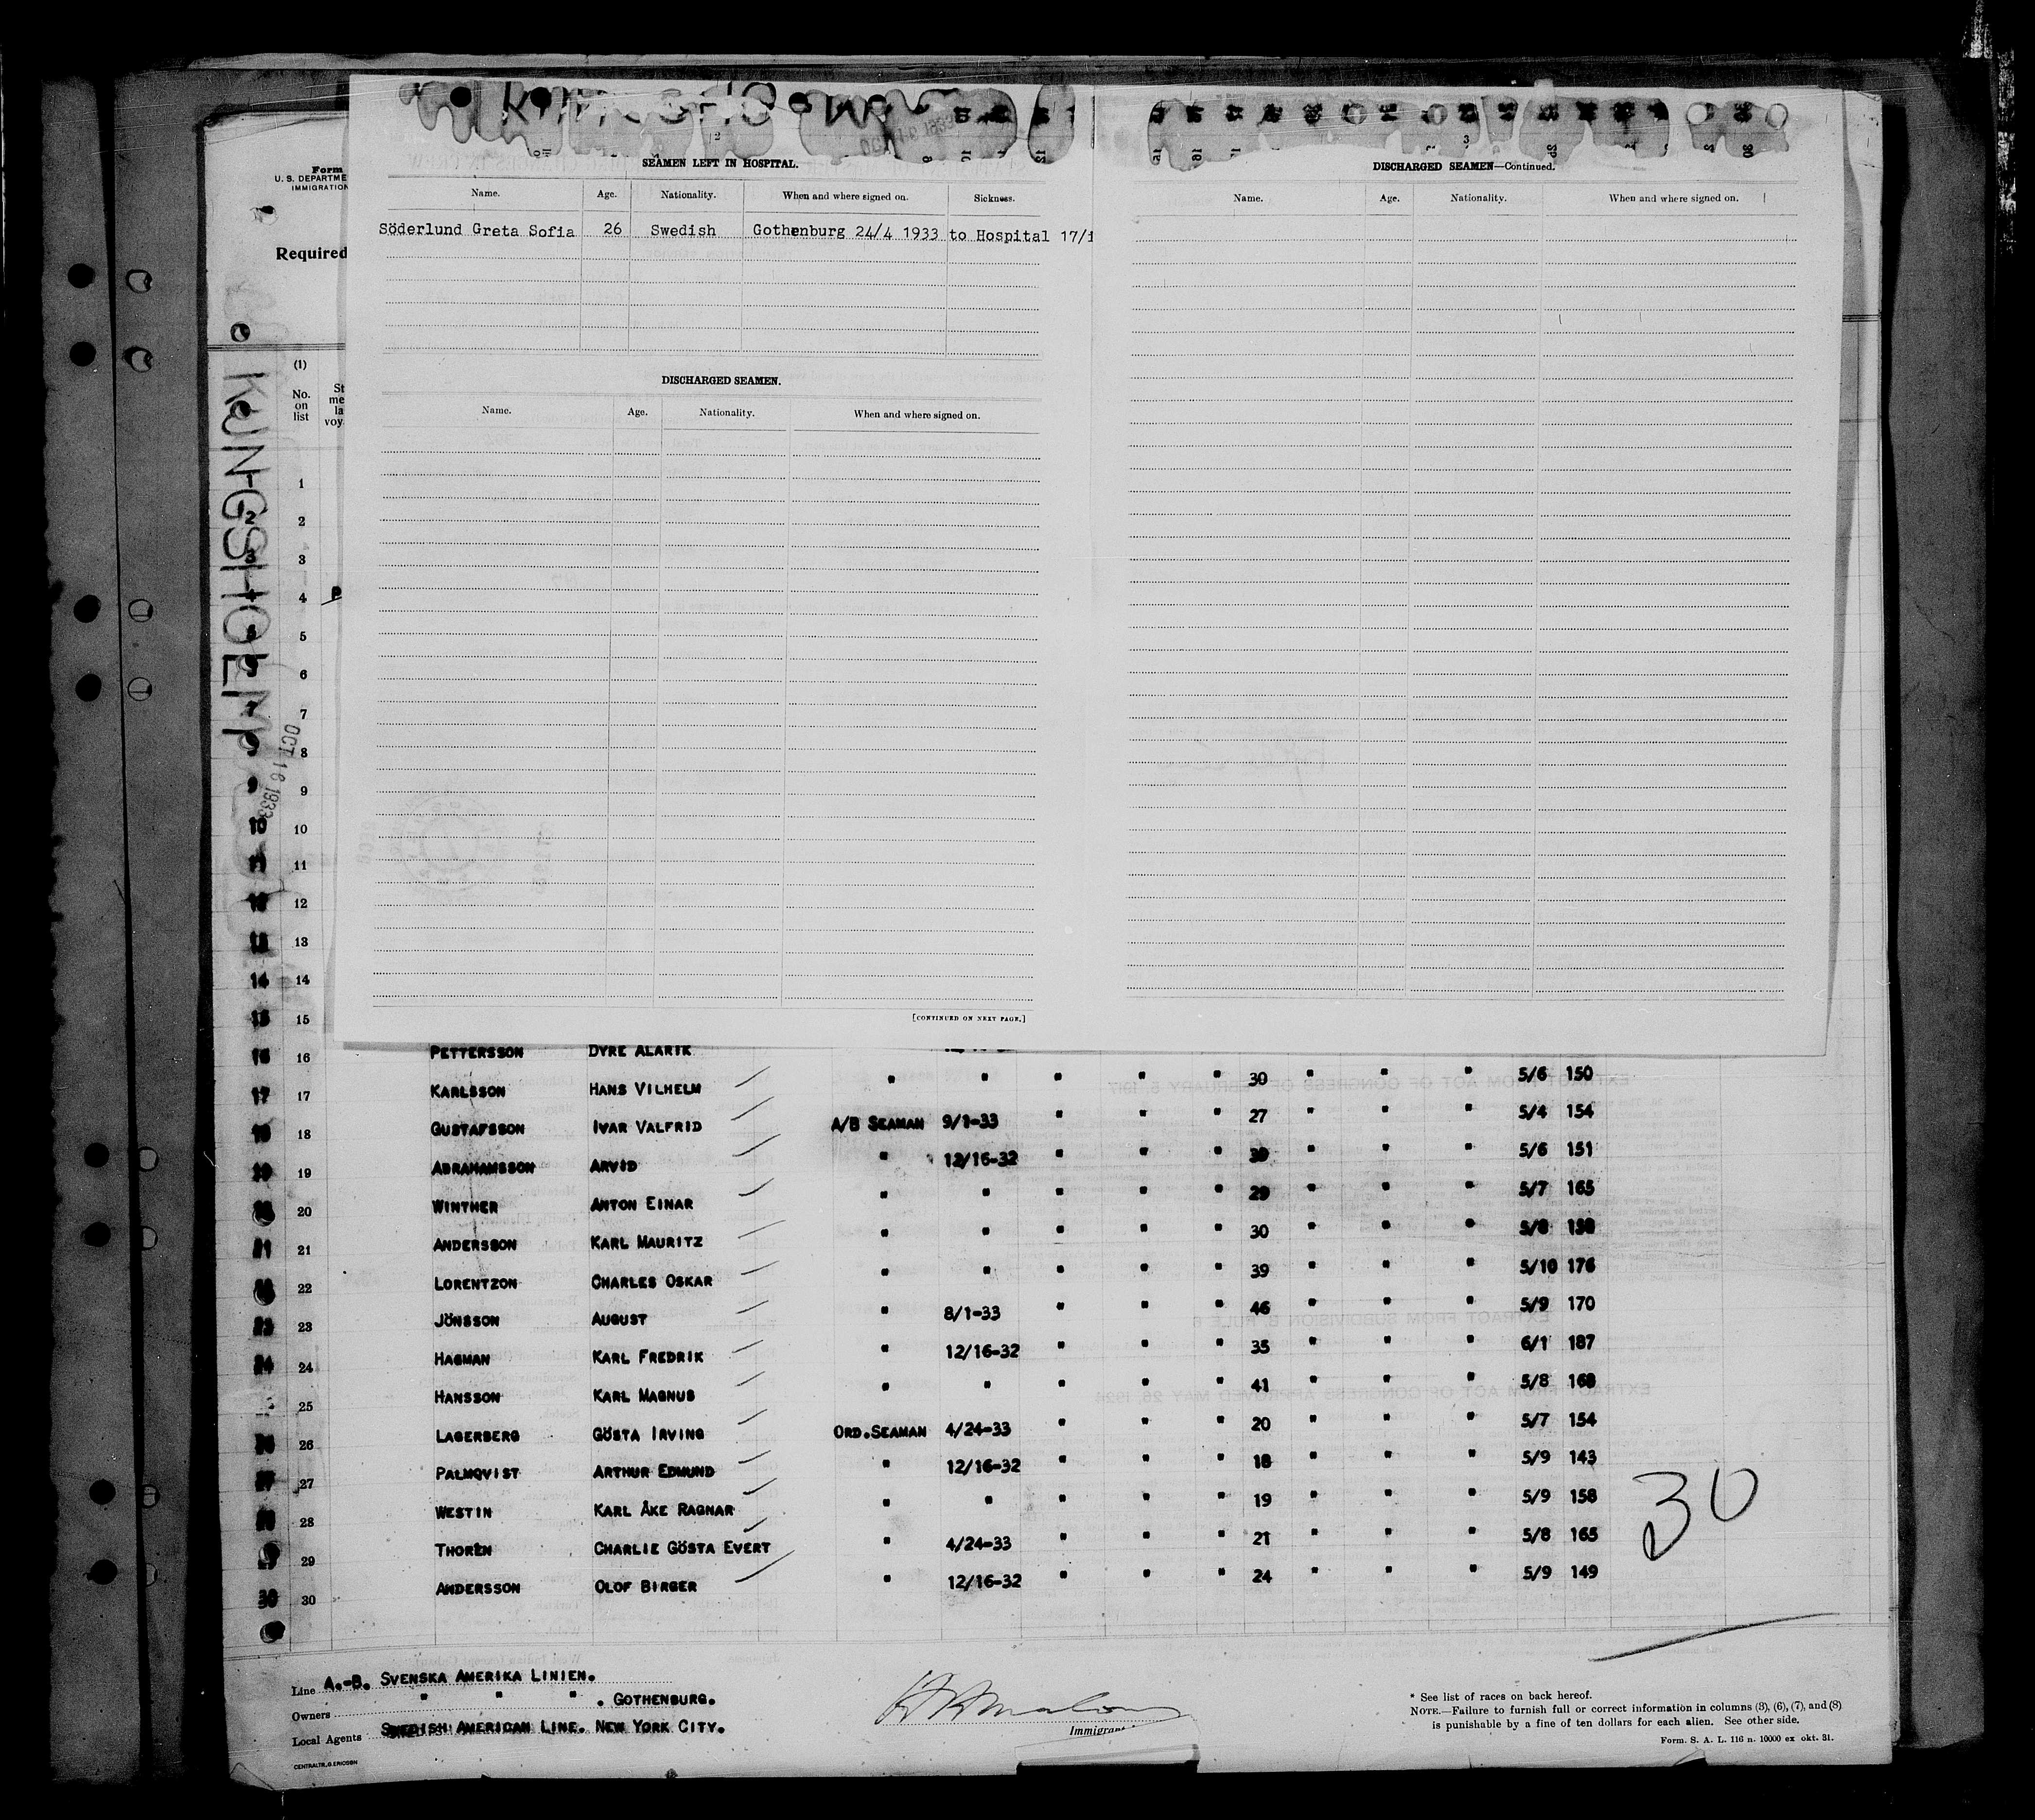 Form
U. S. DEPARTME
IMMIGRATION
Required
KUNGSHOLM
OCT 16 1933
(1)
No. on list
St
me
la
voy
2
SEAMEN LEFT IN HOSPITAL.
Name. Age. Nationality. When and where signed on. Sickness.
Söderlund Greta Sofia 26 Swedish Gothenburg 24/4 1933 to Hospital 17/1
DISCHARGED SEAMEN.
Name. Age. Nationality. When and where signed on.
[CONTINUED ON NEXT PAGE.]
3
DISCHARGED SEAMEN—Continued.
Name. Age. Nationality. When and where signed on.
1
2
3
4 P
5
6
7
8
9
10 10
11 11
12 12
13 13
14 14
15 15
16 16 PETTERSSON DYRE ALARIK
17 17 KARLSSON HANS VILHELM " " " " " 30 " " " 5/6 150
18 18 GUSTAFSSON IVAR VALFRID A/B SEAMAN 9/1-33 " " " 27 " " " 5/4 154
19 19 ABRAHAMSSON ARVID " 12/16-32 " " " 30 " " " 5/6 151
20 WINTHER ANTON EINAR " " " " " 29 " " " 5/7 165
21 21 ANDERSSON KARL MAURITZ " " " " " 30 " " " 5/8 158
22 LORENTZON CHARLES OSKAR " " " " " 39 " " " 5/10 176
23 23 JÖNSSON AUGUST " 8/1-33 " " " 46 " " " 5/9 170
24 24 HAGMAN KARL FREDRIK " 12/16-32 " " " 35 " " " 6/1 187
25 HANSSON KARL MAGNUS " " " " " 41 " " " 5/8 168
26 26 LAGERBERG GÖSTA IRVING ORD.SEAMAN 4/24-33 " " " 20 " " " 5/7 154
27 27 PALMQVIST ARTHUR EDMUND " 12/16-32 " " " 18 " " " 5/9 143
28 28 WESTIN KARL ÅKE RAGNAR " " " " " 19 " " " 5/9 158
29 29 THORÉN CHARLIE GÖSTA EVERT " 4/24-33 " " " 21 " " " 5/8 165
30 30 ANDERSSON OLOF BIRGER " 12/16-32 " " " 24 " " " 5/9 149
30
Line A.-B. SVENSKA AMERIKA LINIEN.
Owners " " " . GOTHENBURG.
Local Agents SWEDISH AMERICAN LINE. NEW YORK CITY.
CENTRALTR. G. ERICSON
Immigrant
* See list of races on back hereof.
NOTE.—Failure to furnish full or correct information in columns (3), (6), (7), and (8)
is punishable by a fine of ten dollars for each alien. See other side.
Form. S. A. L. 116 n. 10000 ex okt. 31.